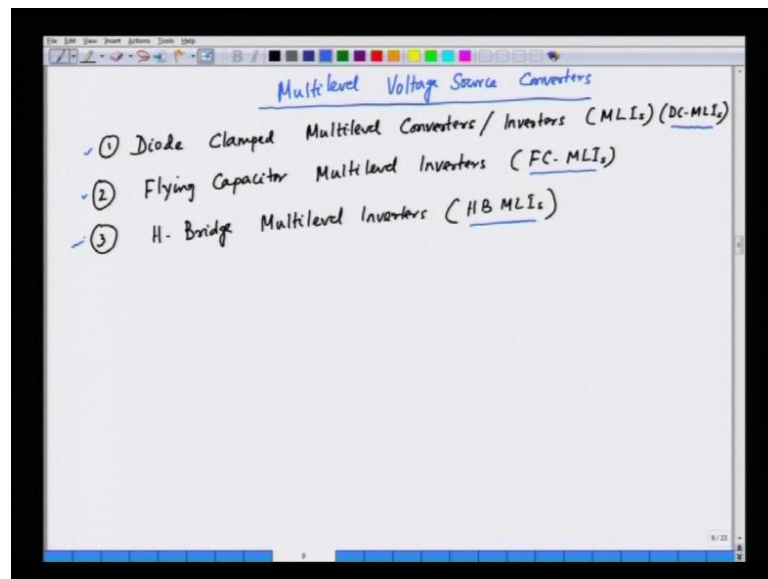 File Edit View Insert Actions Tools Help
Multilevel Voltage Source Converters
① Diode Clamped Multilevel Converters / Inverters (MLIs) (DC-MLIs)
② Flying Capacitor Multilevel Inverters (FC-MLIs)
③ H-Bridge Multilevel Inverters (HB MLIs)
9/23
9